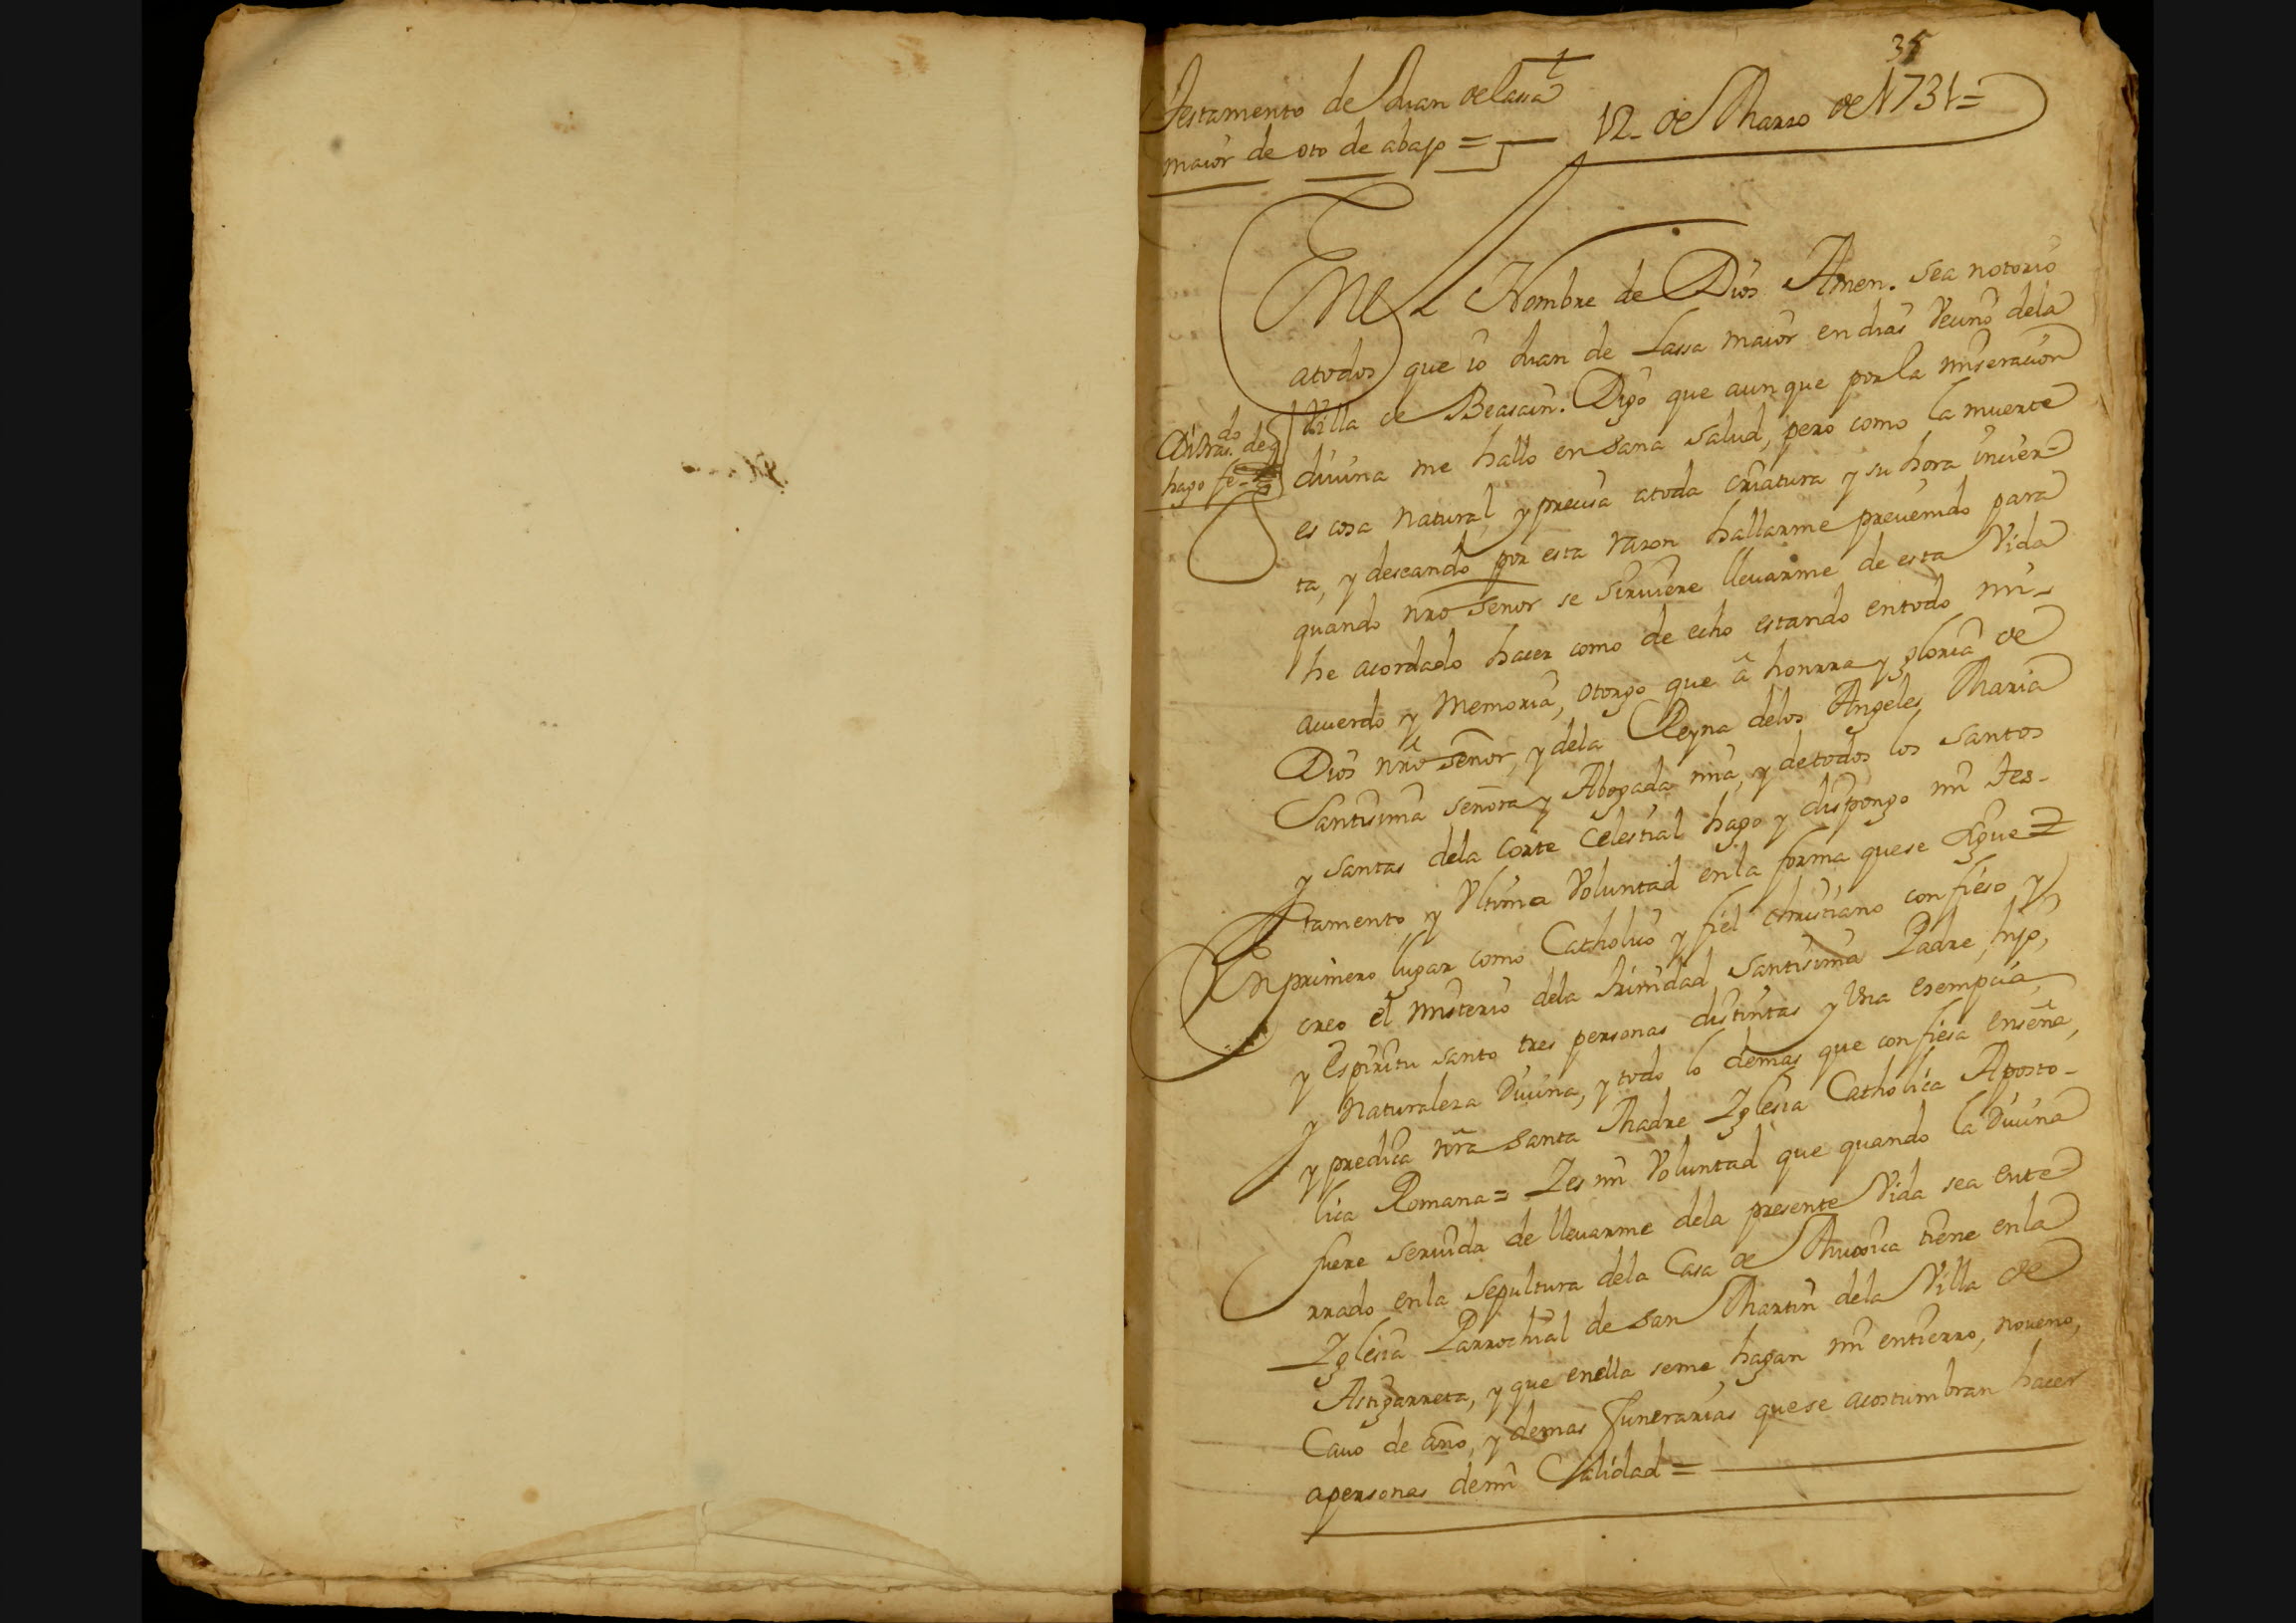 35
Testamento de Juan de lassa
maior de oto de abajo = 12 de Marzo de 1731 =
En el Nombre de Dios Amen. sea notorio
atodos que io Juan de Lassa maior en dias Vecino dela
Villa de Beasain. Digo que aunque por la miseracion
divina me hallo en sana salud, pero como la muerte
hago fe
es cosa natural y precisa atoda criatura y su hora incier-
ta, y deseando por esta razon hallarme prevenido para
quando nro senor se sirviere llevarme de esta Vida
he acordado hacer como de echo estando entodo mi-
acuerdo y memoria, otorgo que â honrra y gloria de
Dios nro señor, y dela Reyna delos Angeles Maria
Santisima señora y Abogada mia, y detodos los santos
y santas dela corte Celestial hago y dispongo mi tes-
tamento y Ultima Voluntad enla forma quese sigue =
En primero lugar como Catholico y fiel christiano confieso y
creo el misterio dela trinidad santisima Padre, hijo,
y Espiritu santo tres personas distintas y Una esempcia,
y naturaleza Divina, y todo lo demas que confiesa enseña,
y predica nra santa Madre Iglesia Catholica Aposto-
lica Romana = Y es mi Voluntad que quando la Divina
fuere servida de llevarme dela presente Vida sea ente-
rrado enla sepultura dela Casa de Muxica tiene enla
Iglesia Parrochial de san Martin dela Villa de
Astigarreta, y que enella seme hagan mi entierro, noveno,
Cavo de año, y demas funerarias quese acostumbran hacer
apersonas demi Calidad =